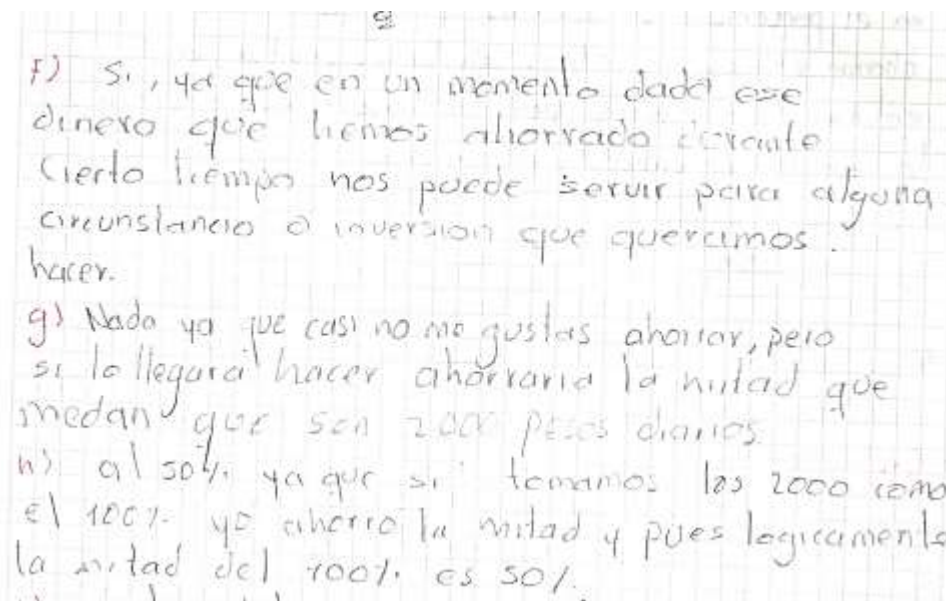 f) Si, ya que en un momento dado ese
dinero que hemos ahorrado durante
cierto tiempo nos puede servir para alguna
circunstancia o inversion que queramos.
hacer.
g) Nada ya que casi no me gustas ahorrar, pero
si lo llegara hacer ahorraria la mitad que
medan que son 2000 pesos diarios
h) al 50% ya que si tomamos los 2000 como
el 100% yo ahorro la mitad y pues logicamente
la mitad del 100% es 50%.